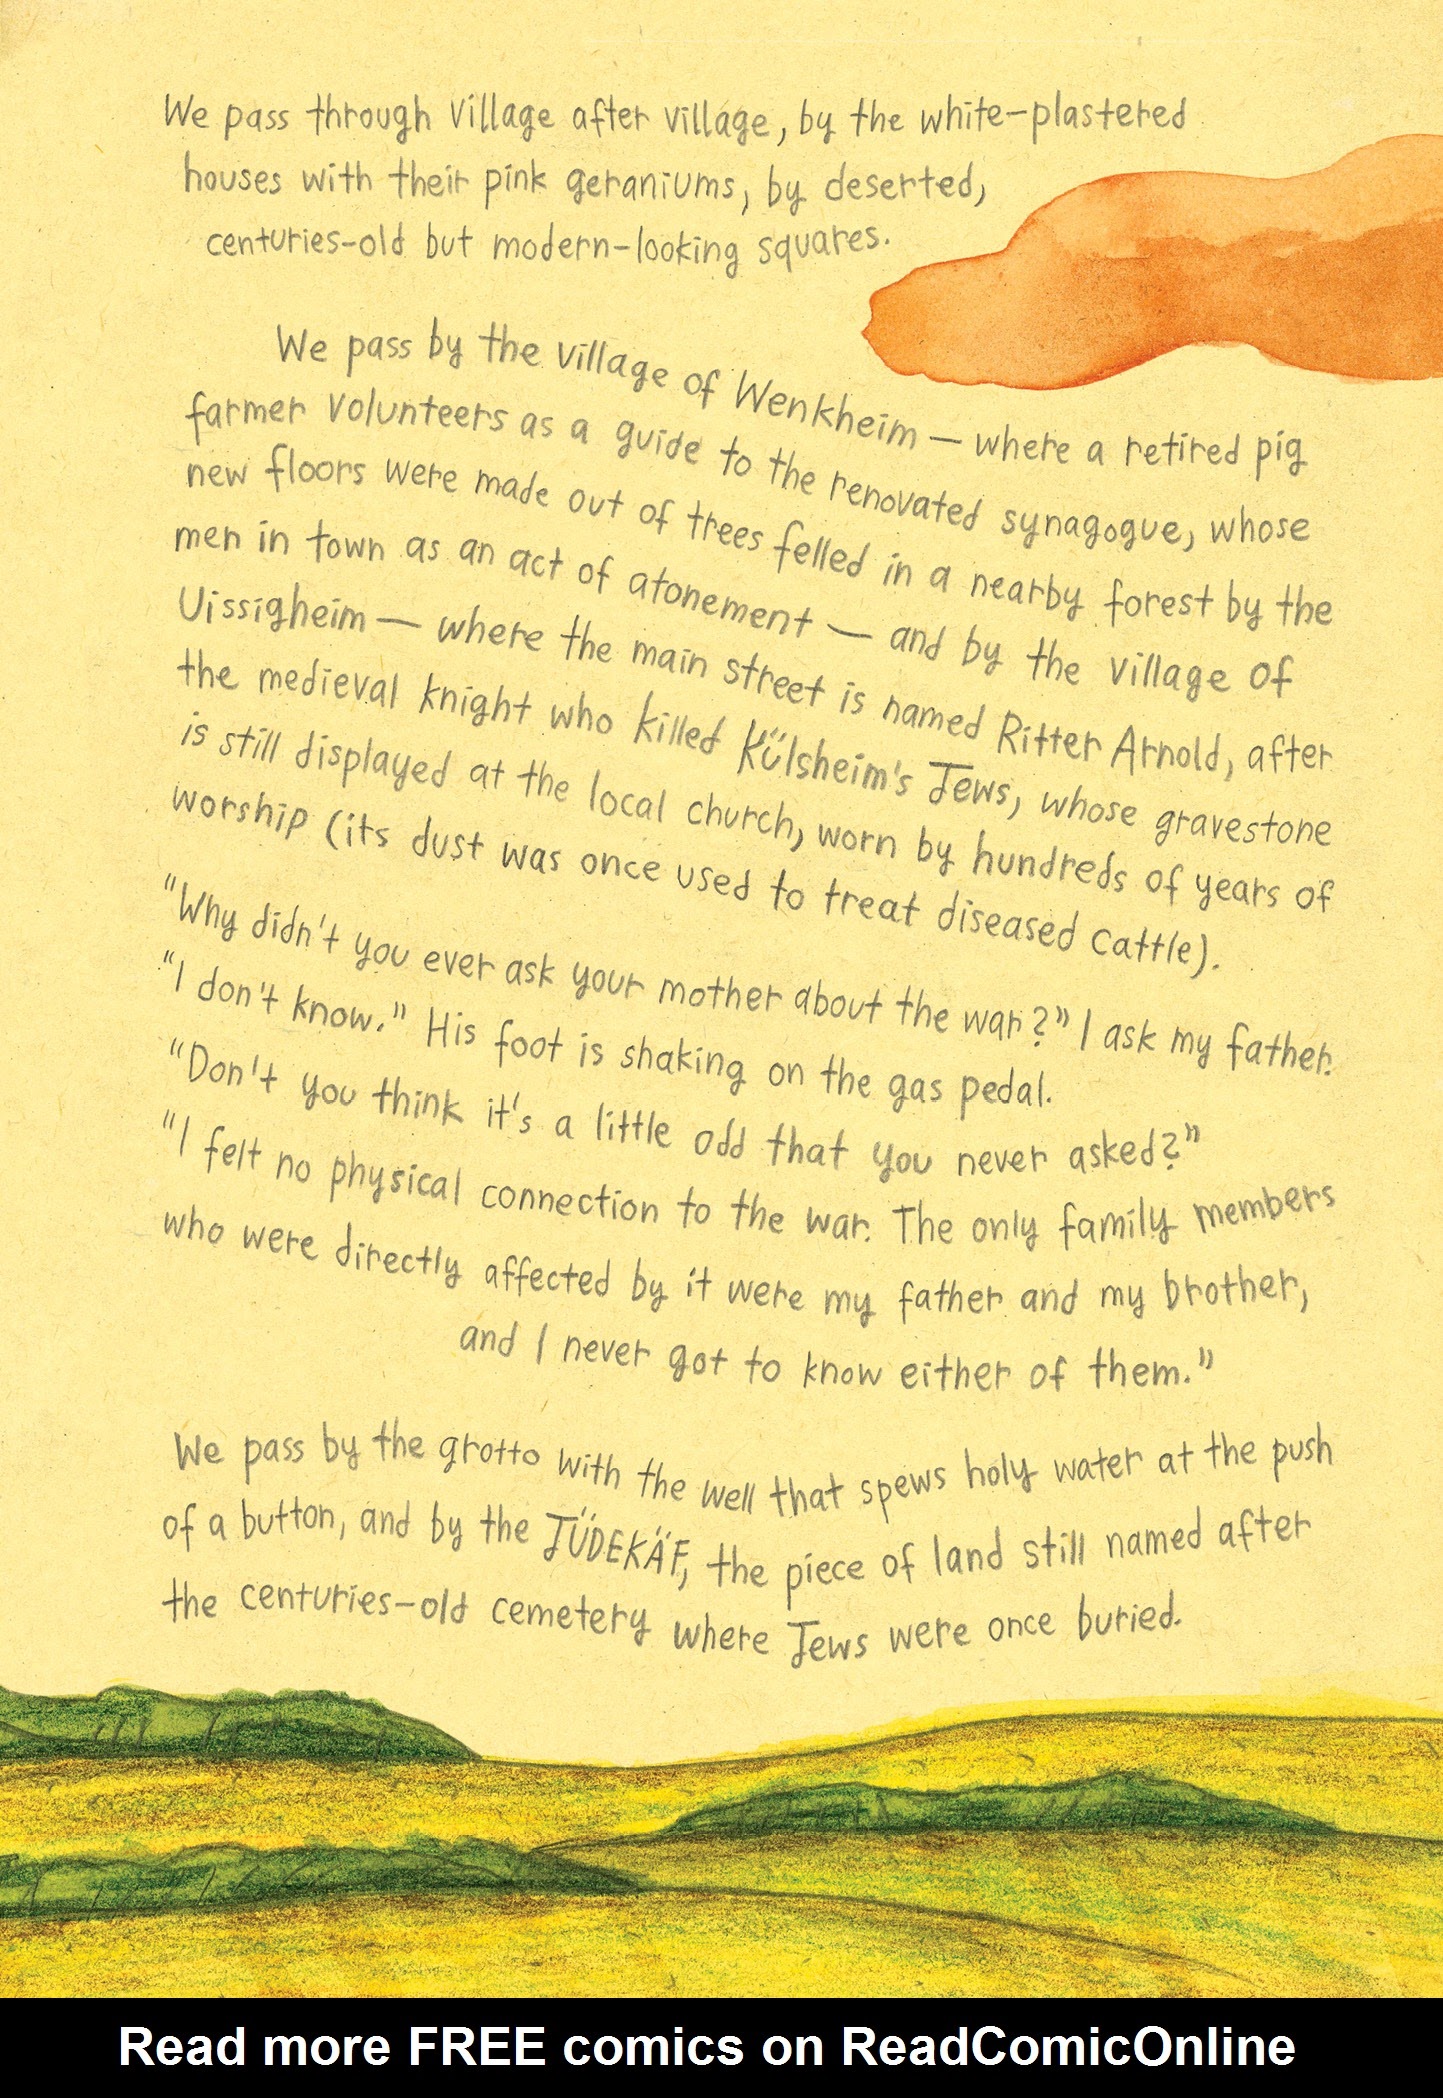 We pass through village after village, by the white-plastered
houses with their pink geraniums, by deserted,
centuries-old but modern-looking squares.
We pass by the village of Wenkheim — where a retired pig
farmer volunteers as a guide to the renovated synagogue, whose
new floors were made out of trees felled in a nearby forest by the
men in town as an act of atonement — and by the village of
Uissigheim — where the main street is named Ritter Arnold, after
the medieval knight who killed Külsheim's Jews, whose gravestone
is still displayed at the local church, worn by hundreds of years of
worship (its dust was once used to treat diseased cattle).
"Why didn't you ever ask your mother about the war?" I ask my father.
"I don't know." His foot is shaking on the gas pedal.
"Don't you think it's a little odd that you never asked?"
"I felt no physical connection to the war. The only family members
who were directly affected by it were my father and my brother,
and I never got to know either of them."
We pass by the grotto with the well that spews holy water at the push
of a button, and by the JÜDEKÄF, the piece of land still named after
the centuries-old cemetery where Jews were once buried.
Read more FREE comics on ReadComicOnline